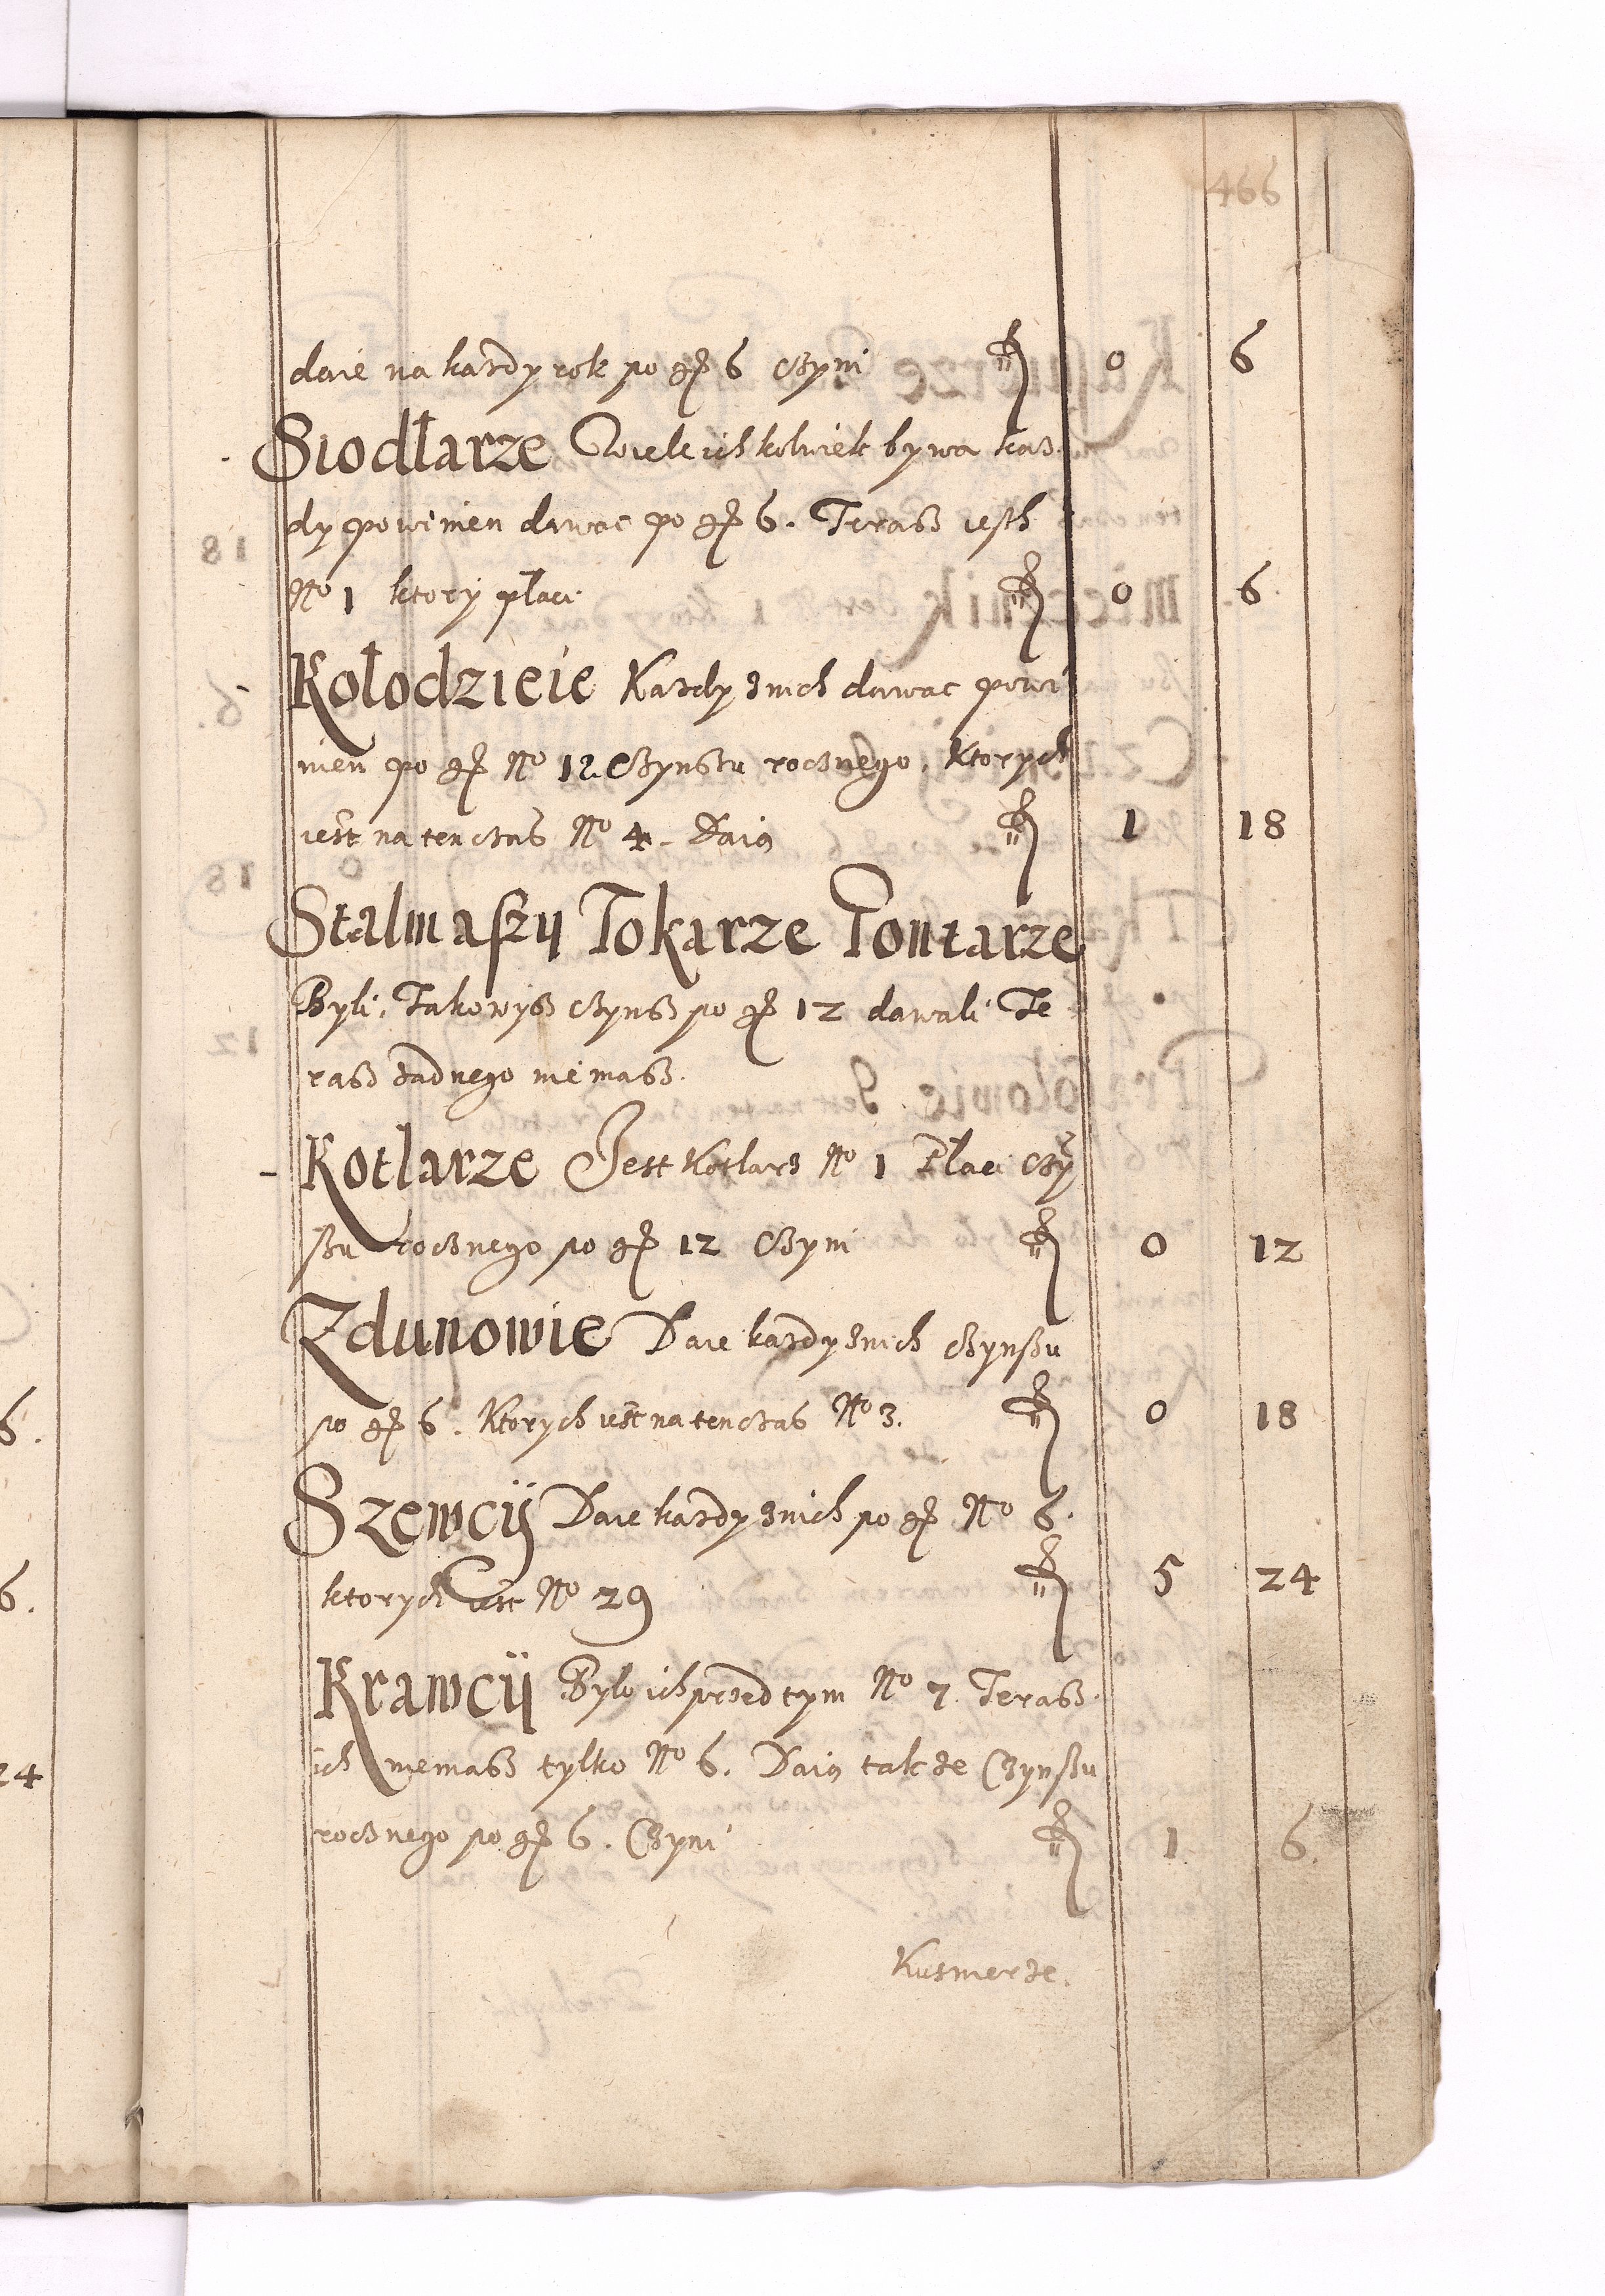 466
daie na kazdy rok po gr 6 czyni fl 0 6
Siodłarze Wiele ich kolwiek bywa kaz
dy powinien dawac po gr 6. Terasz iesth
No 1 ktory płaci fl 0 6
Kołodzieie Kazdy znich dawac powi
nien po gr No 12. Czynszu rocznego, Ktorych
iest na tenczas No 4. Daią fl 1 18
Stalmaszy Tokarze Tontarze
Byli. Takowysz czynsz po gr 12 dawali Te
rasz zadnego niemasz.
Kotlarze Jest Kotlarz No 1 Płaci czÿ
szu rocznego po gr 12 czyni fl 0 12
Zdunowie Daie kazdy znich czynszu
po gr 6. Ktorych iest na tenczas No 3. fl 0 18
Szewcÿ Daie kazdy znich po gr No 6.
ktorych iest No 29 fl 5 24
Krawcÿ Bylo ich przed tym No 7. Terasz
ich niemasz tylko No 6. Daią takze Czynszu
rocznego po gr 6. Czyni fl 1 6.
Kusmerze.
6.
6.
24